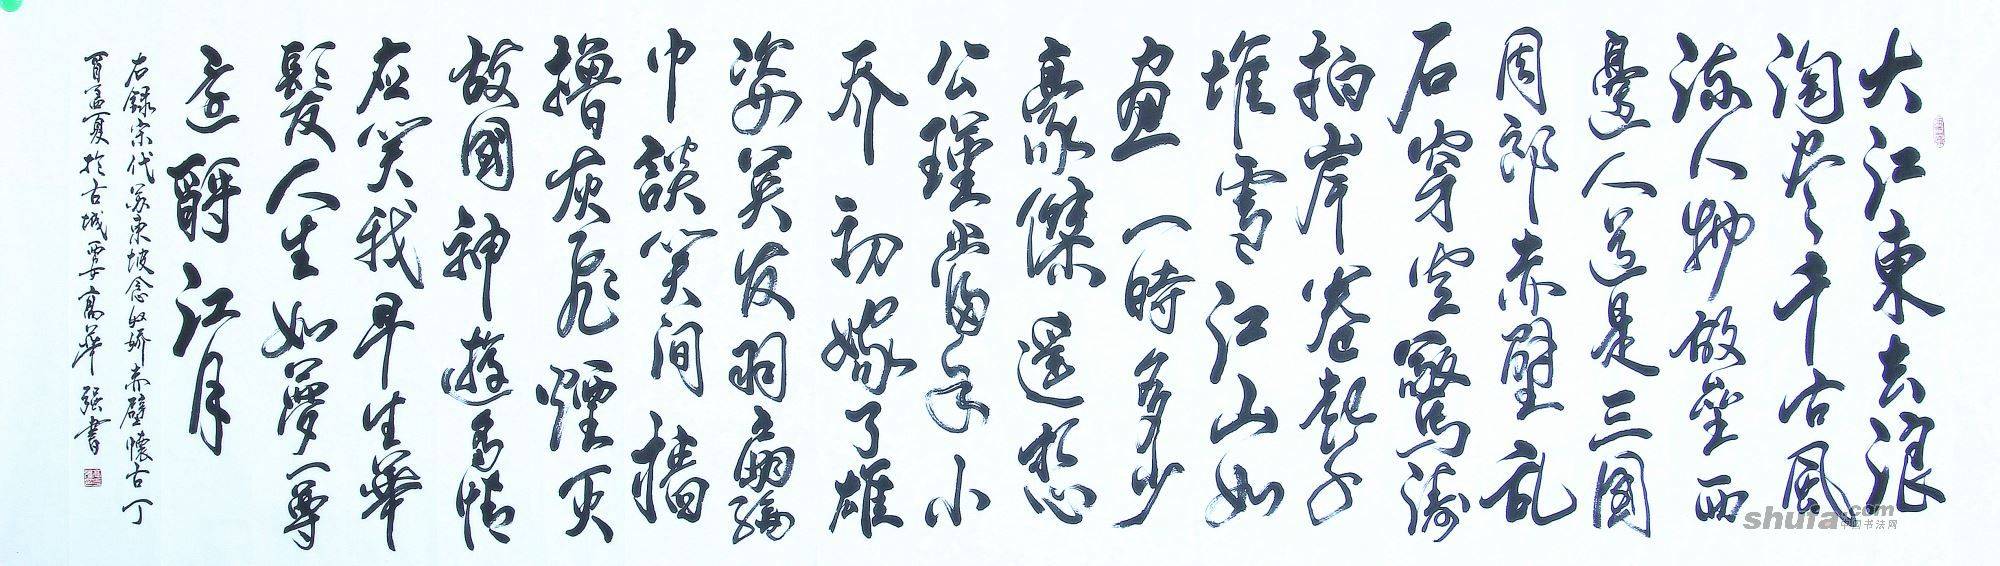 大江東去浪
淘尽千古風
流人物故壘西
邊人道是三國
周郎赤壁乱
石穿空驚濤
拍岸卷起千
堆雪江山如
画一時多少
豪傑遥想
公瑾當年小
乔初嫁了雄
姿英发羽扇綸
巾談笑间檣
櫓灰飛煙灭
故國神遊多情
应笑我早生華
髮人生如夢一尊
还酹江月
右錄宋代苏東坡念奴娇赤壁懷古丁
酉孟夏於古城
張書
shufa.com
中国书法网